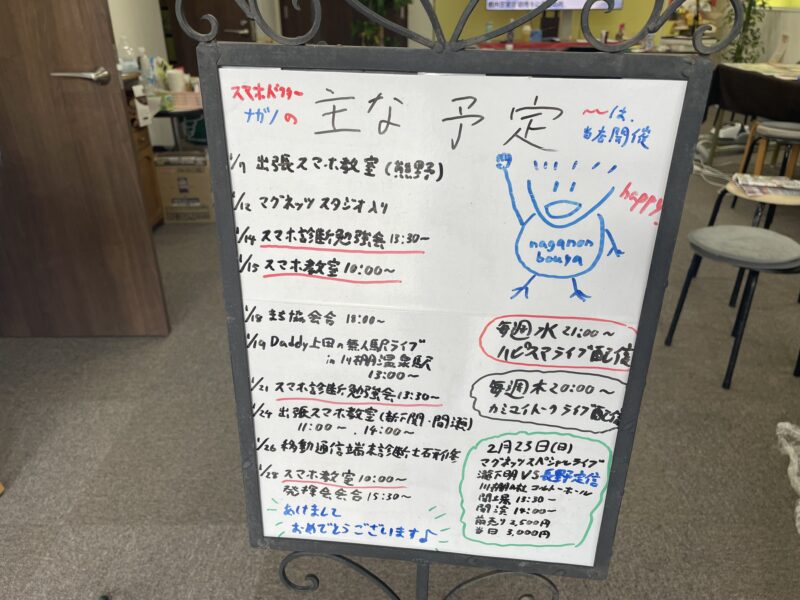 スマホドクター
ナガノの 主な予定
〜は、
当店開催
1/7 出張スマホ教室(熊野)
1/12 マグネッツ スタジオ入り
1/14 スマホ診断勉強会 13:30〜
1/15 スマホ教室 10:00〜
1/18 まち協会合 18:00〜
1/19 Daddy上田の無人駅ライブ
in 川棚温泉駅
13:00〜
1/21 スマホ診断勉強会 13:30〜
1/24 出張スマホ教室(新下関・
11:00〜、14:00〜
1/26 移動通信端末診断士研修
1/28 スマホ教室 10:00〜
発揮会会合 15:30〜
あけまして
おめでとうございます♪
happy!
naganon
bouya
毎週水 21:00〜
ハピスマライブ配信
毎週木 20:00〜
カミユイトーク ライブ配信
2月23日(日)
マグネッツスペシャルライブ
瀧下明 VS 長野定信
川棚の杜 コルトーホール
開場 13:30〜
開演 14:00〜
前売り 2,500円
当日 3,000円